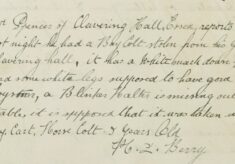 of Clavering Hall, Essex, reports
night he had a Bay Colt stolen from his
hall, it has a White mark down
and some white legs supposed to have gone
a Blinker Halter is missing out
it is supposed that it was taken
East, Horse Colt. 3 Years Old
Berry